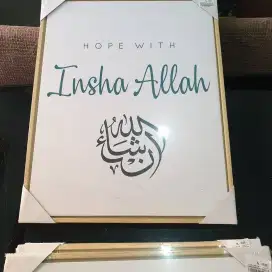 HOPE WITH
Insha Allah
إن شاء الله